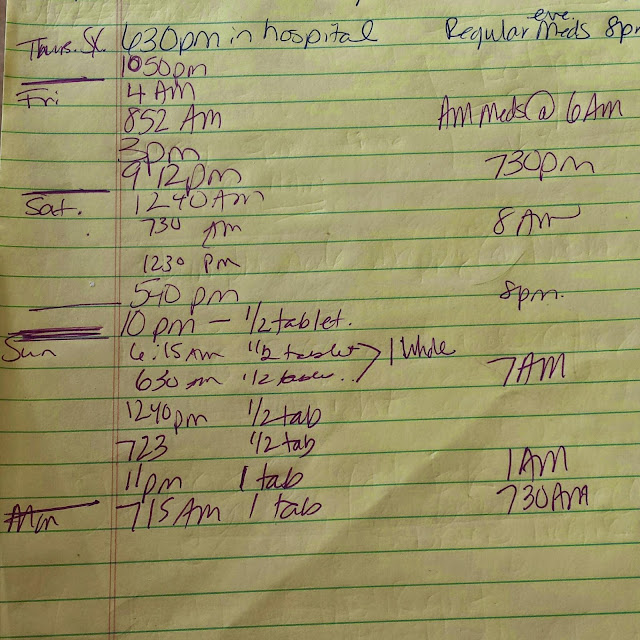 Thurs. SX. 630pm in hospital Regular eve. Meds 8pm
1050pm
Fri 4 AM
852 AM AM meds @ 6 AM
3pm
912pm 730pm
Sat. 1240 AM
730 AM 8 AM
1230 pm
540 pm 8pm.
10 pm — 1/2 tablet.
Sun 6:15 AM 1/2 tablet 1 Whole
630 am 1/2 7 AM
1240pm 1/2 tab
723 1/2 tab
11pm 1 tab 1 AM
Mon 715 AM 1 tab 730 AM